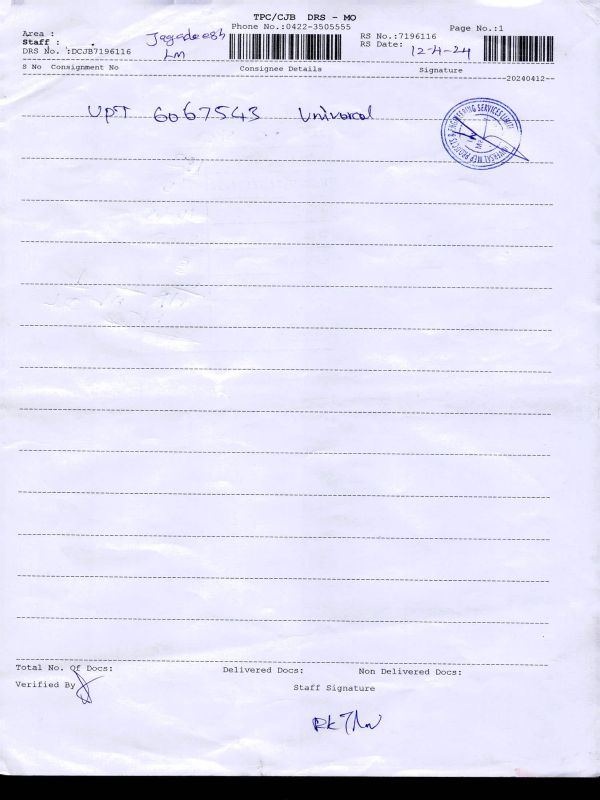 TPC/CJB DRS - MO
Phone No.:0422-3505555
Page No.:1
Area :
Staff :
Jagadeesh
LM
RS No.:7196116
RS Date: 12-4-24
DRS No. :DCJB7196116
S No Consignment No Consignee Details Signature
20240412
UPT 6067543 Universal
Total No. Of Docs: Delivered Docs: Non Delivered Docs:
Verified By
Staff Signature